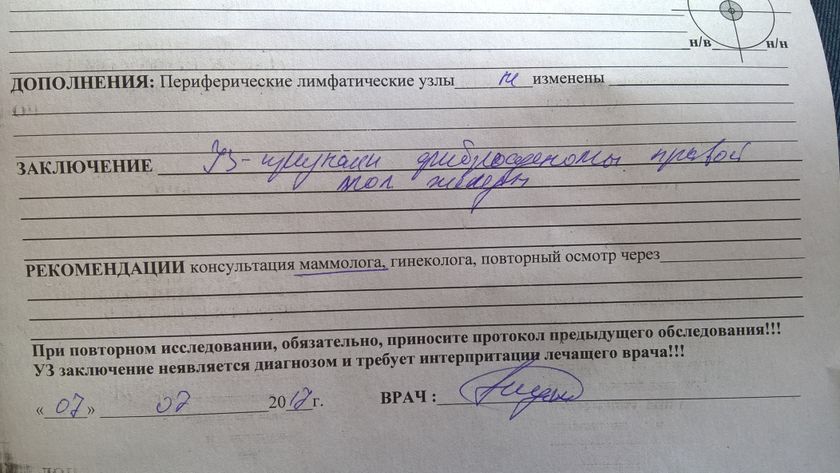 н/в н/н
ДОПОЛНЕНИЯ: Периферические лимфатические узлы не изменены
ЗАКЛЮЧЕНИЕ УЗ-признаки фиброаденомы правой
мол железы
РЕКОМЕНДАЦИИ консультация маммолога, гинеколога, повторный осмотр через
При повторном исследовании, обязательно, приносите протокол предыдущего обследования!!!
УЗ заключение неявляется диагнозом и требует интерпритации лечащего врача!!!
«07» 07 2017г. ВРАЧ :